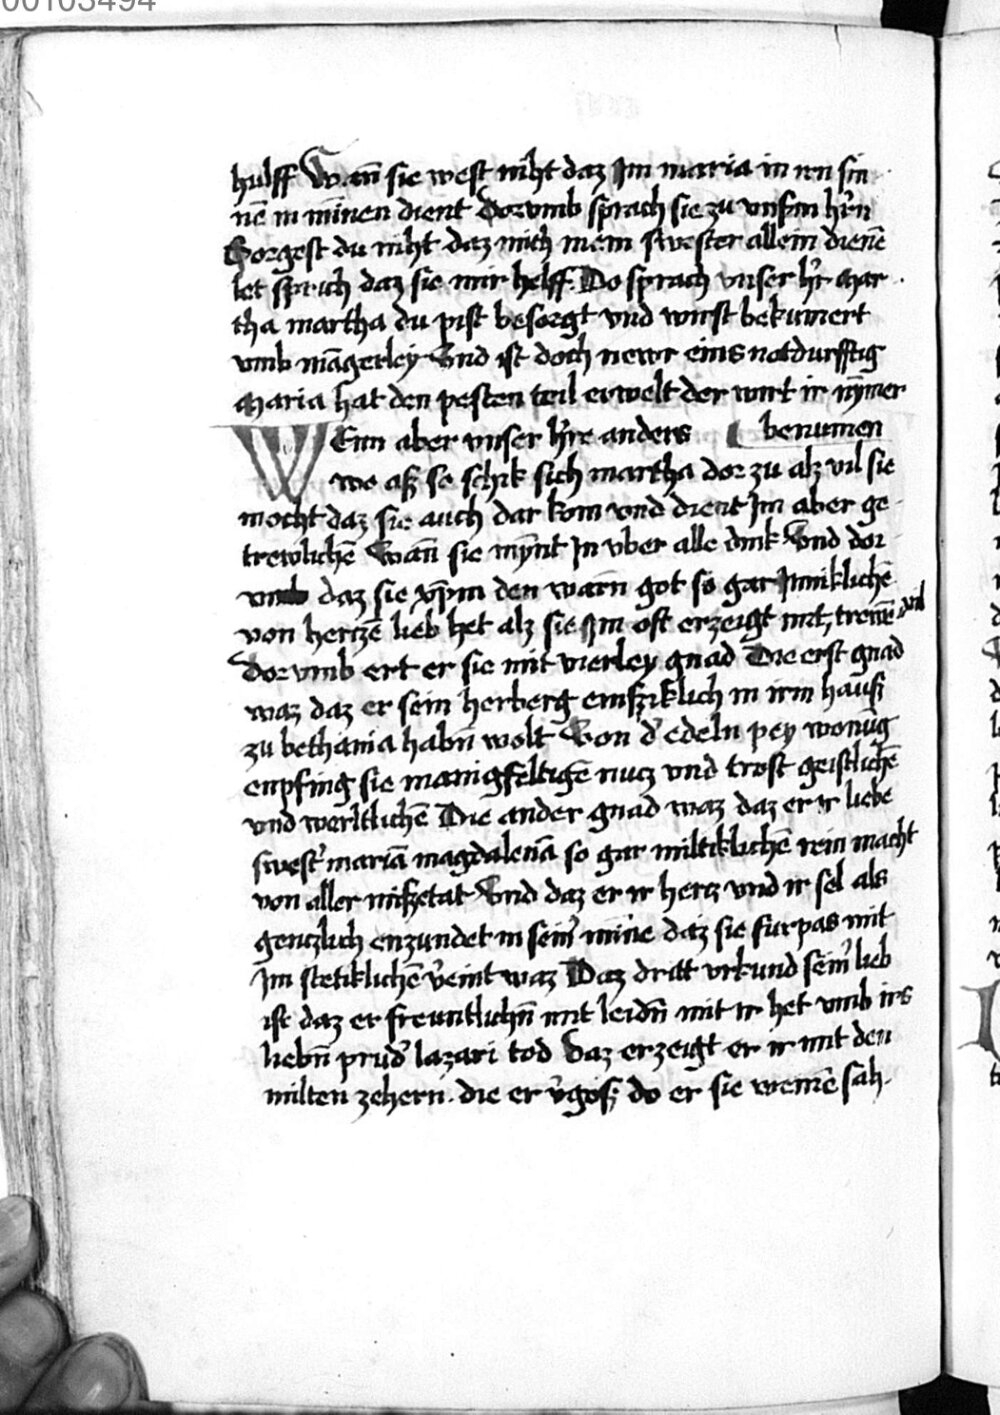 00103494
hulff Wañ sie west niht daz Im maria in irn sin
nē in mīnen dient Dorvmb sprach sie zu vnserm hr̄n
Sorgest du niht daz mich mein swester allein dienē
let sprich daz sie mir helff Do sprach vnser hr̄ Mar
tha martha du pist besorgt vnd wirst bekumert
vmb māgerley Vnd ist doch newr eins notdurfftig
Maria hat den pesten teil erwelt der wirt ir nȳmer
benumen
WEnn aber vnser hr̄re anders
wo aß so schik sich martha dor zu alz vil sie
mocht daz sie auch dar kom vnd dient Im aber ge
trewlichē Wañ sie mȳnt In vber alle dink Vnd dor
vmb daz sie xp̄m den warn got so gar Inniklichē
von hertzē lieb het alz sie Im oft erzeigt mit trewē vil
Dorvmb ert er sie mit vierley gnad Die erst gnad
waz daz er sein herberg emßziklich in irm hauß
zu bethania habn̄ wolt Von d' edeln pey wonūg
enpfing sie manigfeltigē nucz vnd trost geistlichē
vnd werltlichē Die ander gnad waz daz er ir liebe
swest' mariā magdalenā so gar miltiklichē rein macht
von aller mißetat Vnd daz er ir hertz vnd ir sel als
genczlich enzundet in sein' mīne daz sie furpas mit
Im stetiklichē v'eint waz Daz dritt vrkund sein' lieb
ist daz er freuntlichn̄ mit leidn̄ mit ir het vmb irs
liebn̄ prud' lazari tod Daz erzeigt er ir mit den
milten zehern die er v'goß do er sie weinē sah